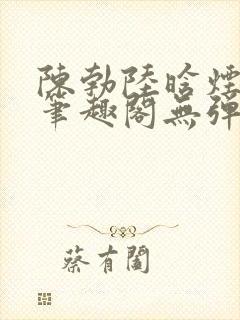 陳勃陸晗煙
筆趣閣無彈
蔡有闔